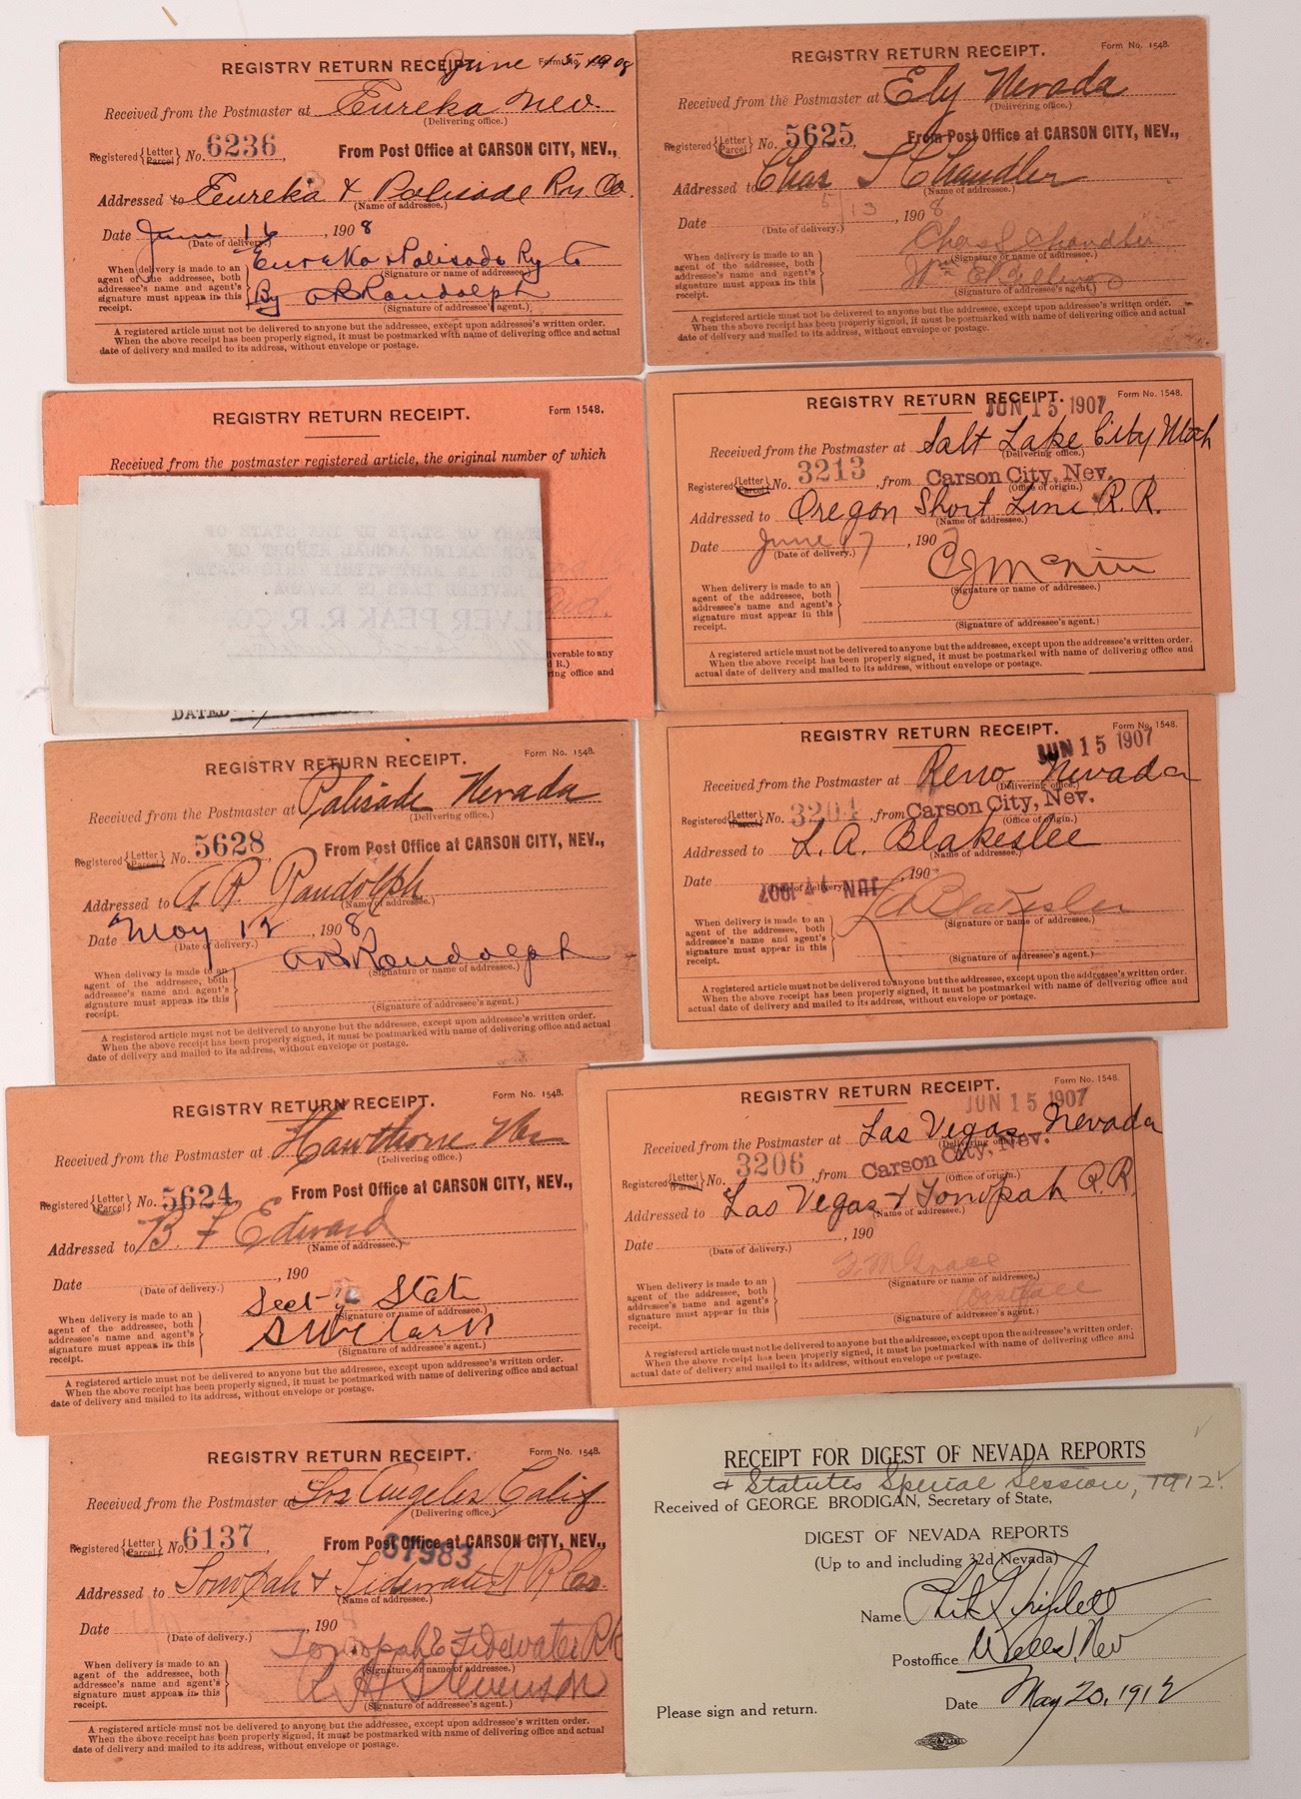 REGISTRY RETURN RECEIPT.
June 15, 1908
Received from the Postmaster at Eureka Nev.
(Delivering office.)
Registered {Letter Parcel} No. 6236, From Post Office at CARSON CITY, NEV.,
Addressed to Eureka & Palisade Ry. Co.
(Name of addressee.)
Date June 16, 1908
(Date of delivery.)
When delivery is made to an agent of the addressee, both addressee's name and agent's signature must appear in this receipt.
Eureka & Palisade Ry Co
(Signature or name of addressee.)
By A R Randolph
(Signature of addressee's agent.)
A registered article must not be delivered to anyone but the addressee, except upon addressee's written order.
When the above receipt has been properly signed, it must be postmarked with name of delivering office and actual
date of delivery and mailed to its address, without envelope or postage.
REGISTRY RETURN RECEIPT.
Form No. 1548.
Received from the Postmaster at Ely Nevada
(Delivering office.)
Registered {Letter Parcel} No. 5625, From Post Office at CARSON CITY, NEV.,
Addressed to Chas S Chandler
(Name of addressee.)
Date 5/13, 1908
(Date of delivery.)
When delivery is made to an agent of the addressee, both addressee's name and agent's signature must appear in this receipt.
Chas S Chandler
(Signature or name of addressee.)
(Signature of addressee's agent.)
A registered article must not be delivered to anyone but the addressee, except upon addressee's written order.
When the above receipt has been properly signed, it must be postmarked with name of delivering office and actual
date of delivery and mailed to its address, without envelope or postage.
REGISTRY RETURN RECEIPT.
Form 1548.
Received from the postmaster registered article, the original number of which
SILVER PEAK R. R. CO.
DATED
REGISTRY RETURN RECEIPT.
Form No. 1548.
JUN 15 1907
Received from the Postmaster at Salt Lake City Utah
(Delivering office.)
Registered {Letter Parcel} No. 3213, from Carson City, Nev.
(Office of origin.)
Addressed to Oregon Short Line R. R.
(Name of addressee.)
Date June 17, 1907
(Date of delivery.)
When delivery is made to an agent of the addressee, both addressee's name and agent's signature must appear in this receipt.
(Signature or name of addressee.)
(Signature of addressee's agent.)
A registered article must not be delivered to anyone but the addressee, except upon addressee's written order.
When the above receipt has been properly signed, it must be postmarked with name of delivering office and
actual date of delivery and mailed to its address, without envelope or postage.
REGISTRY RETURN RECEIPT.
Form No. 1548.
Received from the Postmaster at Palisade Nevada
(Delivering office.)
Registered {Letter Parcel} No. 5628, From Post Office at CARSON CITY, NEV.,
Addressed to A. R. Randolph
(Name of addressee.)
Date May 12, 1908
(Date of delivery.)
When delivery is made to an agent of the addressee, both addressee's name and agent's signature must appear in this receipt.
A R Randolph
(Signature or name of addressee.)
(Signature of addressee's agent.)
A registered article must not be delivered to anyone but the addressee, except upon addressee's written order.
When the above receipt has been properly signed, it must be postmarked with name of delivering office and actual
date of delivery and mailed to its address, without envelope or postage.
REGISTRY RETURN RECEIPT.
Form No. 1548.
JUN 15 1907
Received from the Postmaster at Reno, Nevada
(Delivering office.)
Registered {Letter Parcel} No. 3204, from Carson City, Nev.
(Office of origin.)
Addressed to L. A. Blakeslee
(Name of addressee.)
Date JUN 17 1907, 190
(Date of delivery.)
When delivery is made to an agent of the addressee, both addressee's name and agent's signature must appear in this receipt.
L A Blakeslee
(Signature or name of addressee.)
(Signature of addressee's agent.)
A registered article must not be delivered to anyone but the addressee, except upon addressee's written order.
When the above receipt has been properly signed, it must be postmarked with name of delivering office and
actual date of delivery and mailed to its address, without envelope or postage.
REGISTRY RETURN RECEIPT.
Form No. 1548.
Received from the Postmaster at Hawthorne Nev
(Delivering office.)
Registered {Letter Parcel} No. 5624, From Post Office at CARSON CITY, NEV.,
Addressed to B. F Edward
(Name of addressee.)
Date , 190
(Date of delivery.)
When delivery is made to an agent of the addressee, both addressee's name and agent's signature must appear in this receipt.
Sect-y State
(Signature or name of addressee.)
(Signature of addressee's agent.)
A registered article must not be delivered to anyone but the addressee, except upon addressee's written order.
When the above receipt has been properly signed, it must be postmarked with name of delivering office and actual
date of delivery and mailed to its address, without envelope or postage.
REGISTRY RETURN RECEIPT.
Form No. 1548.
JUN 15 1907
Received from the Postmaster at Las Vegas Nevada
(Delivering office.)
Registered {Letter Parcel} No. 3206, from Carson City, Nev.
(Office of origin.)
Addressed to Las Vegas & Tonopah R. R.
(Name of addressee.)
Date , 190
(Date of delivery.)
When delivery is made to an agent of the addressee, both addressee's name and agent's signature must appear in this receipt.
(Signature or name of addressee.)
(Signature of addressee's agent.)
A registered article must not be delivered to anyone but the addressee, except upon addressee's written order.
When the above receipt has been properly signed, it must be postmarked with name of delivering office and
actual date of delivery and mailed to its address, without envelope or postage.
REGISTRY RETURN RECEIPT.
Form No. 1548.
Received from the Postmaster at Los Angeles Calif
(Delivering office.)
Registered {Letter Parcel} No. 6137, From Post Office at CARSON CITY, NEV.,
67983
Addressed to Tonopah & Tidewater R R Co.
(Name of addressee.)
Date , 190
(Date of delivery.)
When delivery is made to an agent of the addressee, both addressee's name and agent's signature must appear in this receipt.
Tonopah & Tidewater RR
(Signature or name of addressee.)
Stevenson
(Signature of addressee's agent.)
A registered article must not be delivered to anyone but the addressee, except upon addressee's written order.
When the above receipt has been properly signed, it must be postmarked with name of delivering office and actual
date of delivery and mailed to its address, without envelope or postage.
RECEIPT FOR DIGEST OF NEVADA REPORTS
& Statutes Special Session, 1912.
Received of GEORGE BRODIGAN, Secretary of State,
DIGEST OF NEVADA REPORTS
(Up to and including 32d Nevada)
Name Triplett
Postoffice Wells, Nev
Date May 20, 1912
Please sign and return.